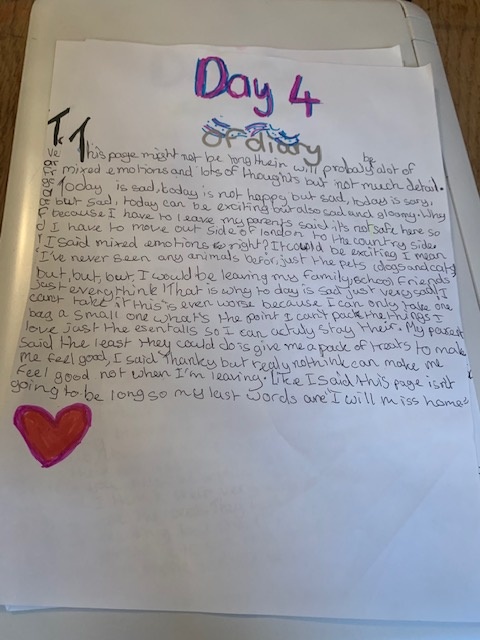 Day 4
of diary
This page might not be long their will probaly be alot of
mixed emotions and lots of thoughts but not much detail.
Today is sad, today is not happy but sad, today is sorry,
but sad, today can be exciting but also sad and gloomy. Why
because I have to leave my parents said its not safe here so
I have to move out side of london to the country side.
I said mixed emotions right? It could be exciting I mean
I've never seen any animals befor, just the pets (dogs and cats)
but, but, but, I would be leaving my family, school, friends
just everythink! That is why to day is sad just very sad, I
canot take it this is even worse because I can only take one
bag a small one what's the point I can't pack the things I
love just the esentalls so I can actuly stay their. My parents
said the least they could do is give me a pack of treats to make
me feel good, I said thanky but realy nothink can make me
feel good not when I'm leaving. Like I said this page isn't
going to be long so my last words are 'I will miss home'